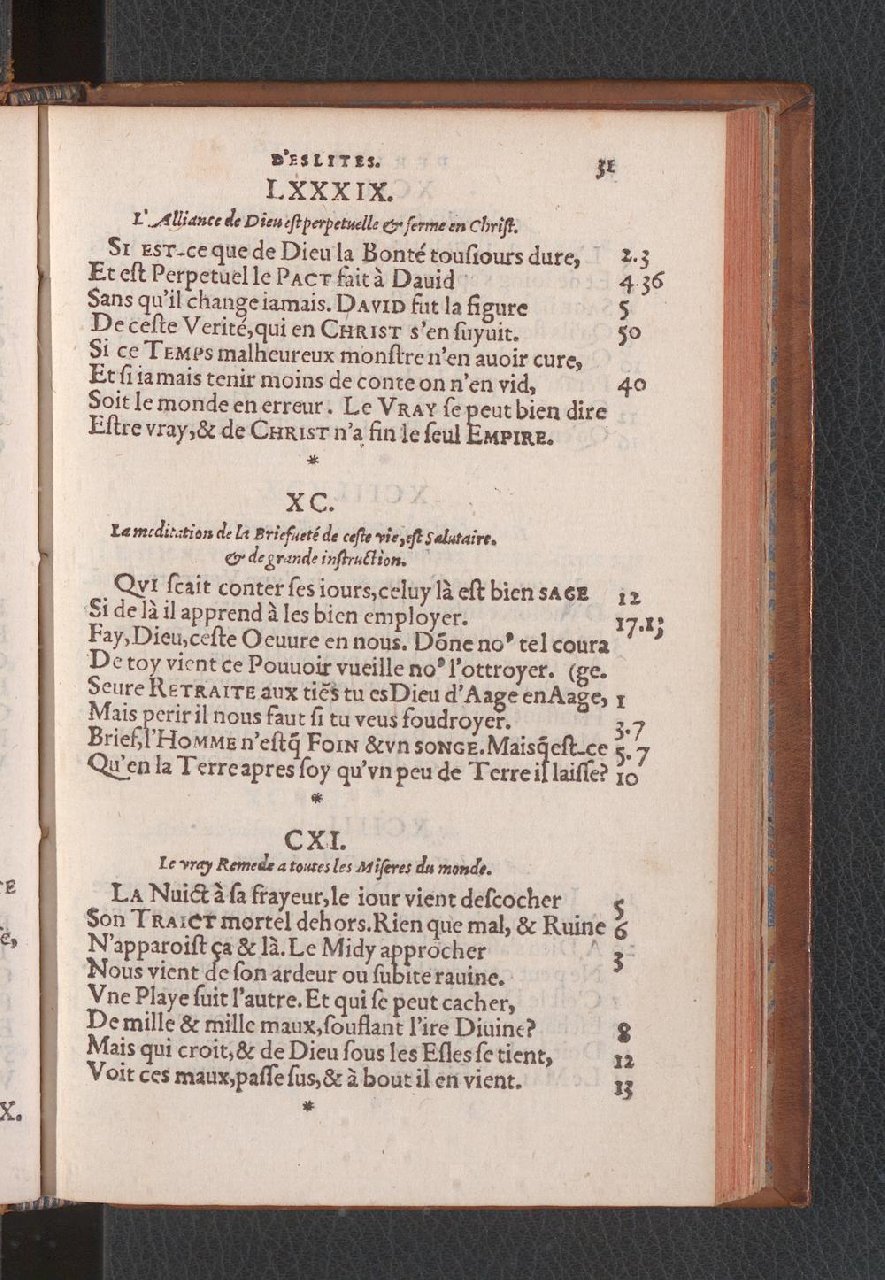 D'ESLITES. 31
LXXXIX.
L'Alliance de Dieu est perpetuelle & ferme en Christ.
SI EST-ce que de Dieu la Bonté tousiours dure, 2.3
Et est Perpetuel le PACT fait à Dauid 4 36
Sans qu'il change iamais. DAVID fut la figure 5
De ceste Verité, qui en CHRIST s'en suyuit. 50
Si ce TEMPS malheureux monstre n'en auoir cure,
Et si iamais tenir moins de conte on n'en vid, 40
Soit le monde en erreur. Le VRAY se peut bien dire
Estre vray, & de CHRIST n'a fin le seul EMPIRE.
*
XC.
La meditation de la Briefueté de ceste vie, est Salutaire,
& de grande instruction.
QVI scait conter ses iours, celuy là est bien SAGE 12
Si de là il apprend à les bien employer.
Fay, Dieu, ceste Oeuure en nous. Dōne noꝰ tel coura 17.15
De toy vient ce Pouuoir vueille noꝰ l'ottroyer. (ge.
Seure RETRAITE aux tiēs tu es Dieu d'Aage en Aage, 1
Mais perir il nous faut si tu veus foudroyer. 3.7
Brief, l'HOMME n'est q̄ FOIN & vn SONGE. Mais q̄ est-ce 5.7
Qu'en la Terre apres soy qu'vn peu de Terre il laisse? 10
*
CXI.
Le vray Remede a toutes les Miseres du monde.
LA Nuict à sa frayeur, le iour vient descocher 5
Son TRAICT mortel dehors. Rien que mal, & Ruine 6
N'apparoist ça & là. Le Midy approcher 3
Nous vient de son ardeur ou subite rauine.
Vne Playe suit l'autre. Et qui se peut cacher,
De mille & mille maux, souflant l'ire Diuine? 8
Mais qui croit, & de Dieu sous les Esles se tient, 12
Voit ces maux, passe sus, & à bout il en vient. 13
*
X.